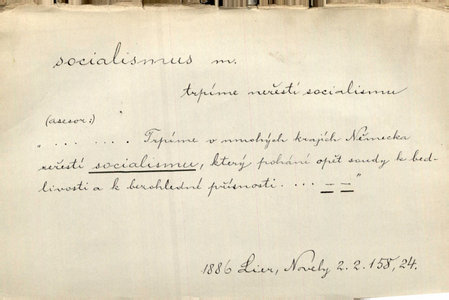 socialismus m.
trpíme neřestí socialismu
(asesor:)
„ . . . . . . . Trpíme v mnohých krajích Německa
neřestí socialismu, který pohání opět soudy k bed-
livosti a k bezohledné přísnosti . . . . — — "
1886 Lier, Novely 2. 2. 158, 24.